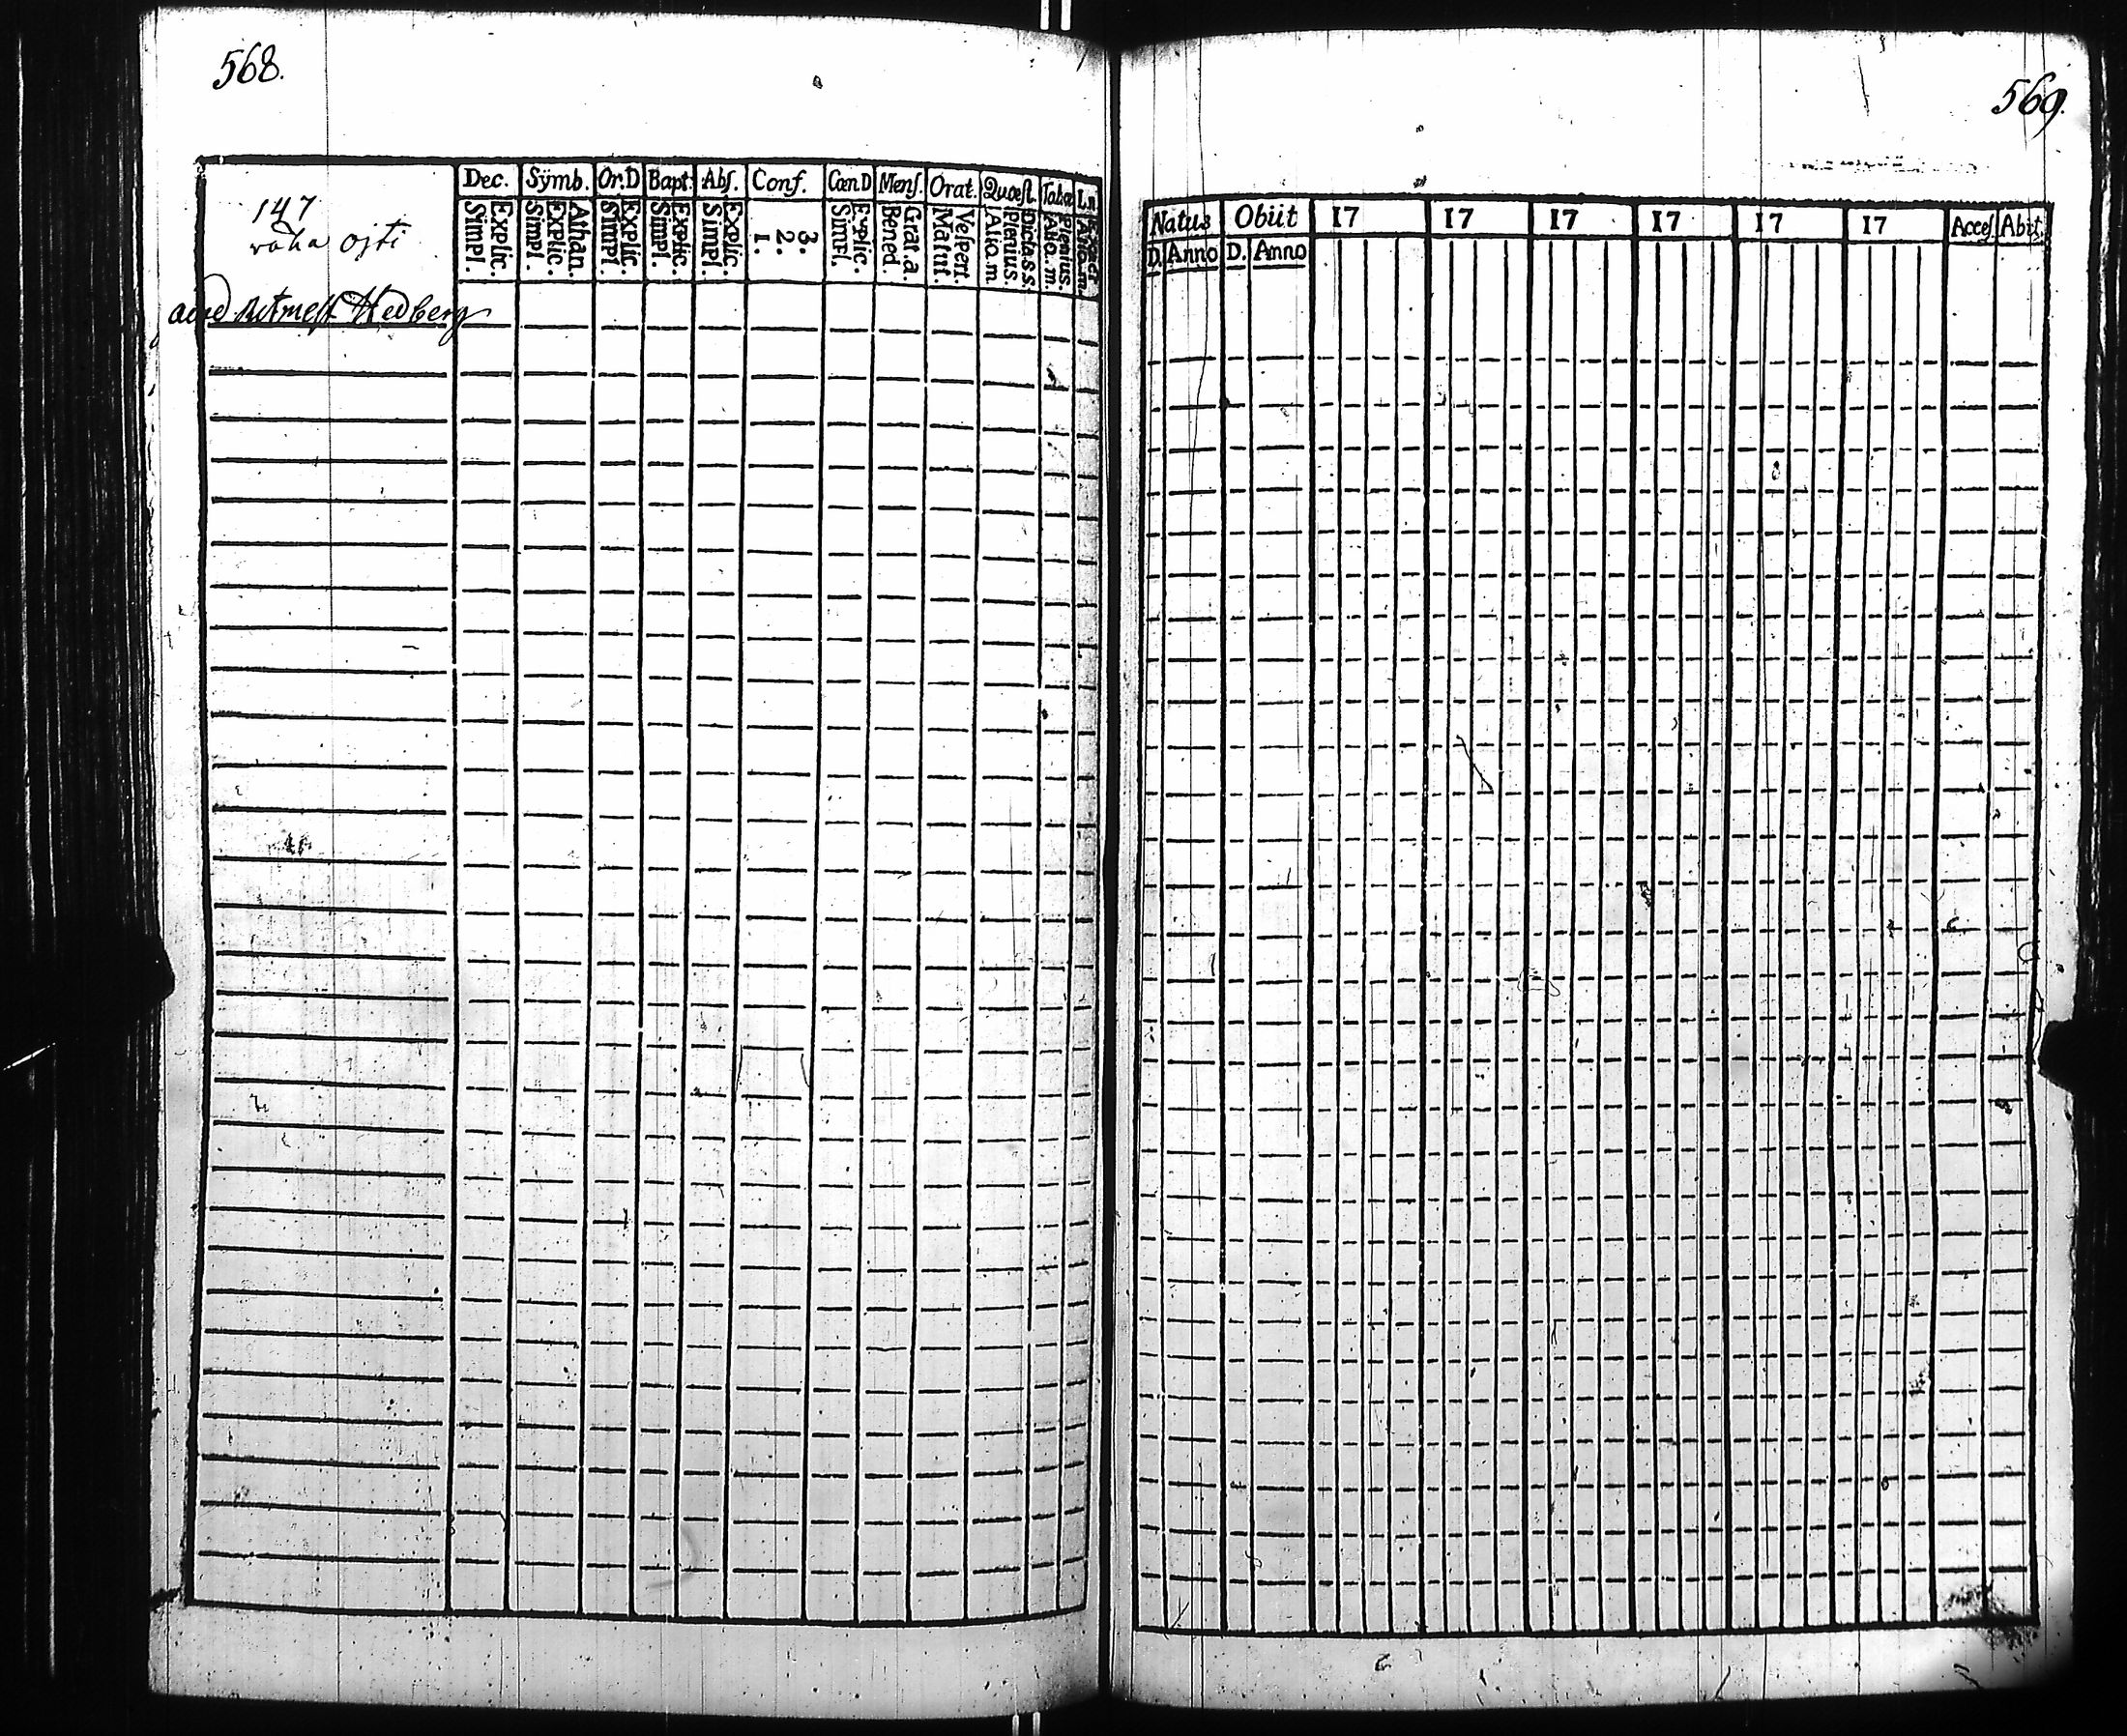 568.
147
Dec. Sÿmb. Or.D Bapt. Abs. Conf. Cœn D Mens. Orat. Quæst. Taba
Explic. Simpl. Athan. Explic. Simpl. Explic. Simpl. Explic. Simpl. Explic. Simpl. 3. 2. 1. Explic. Simpl. Grat. a. Bened. Vespert. Matut. Dicta s.s. Plenius. Aliq. m Plenius. Aliq. m.
Hedberg
569.
Natus Obiit 17 17 17 17 17 17 Acces Abit.
D. Anno D. Anno